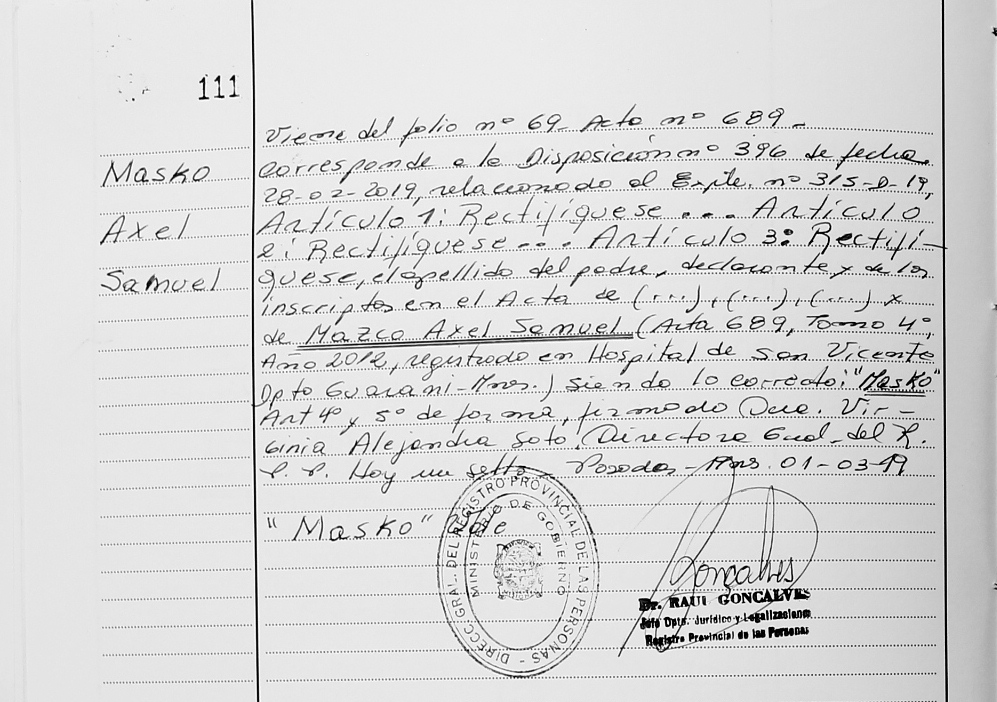 111
Masko
Axel
Samuel
Viene del folio nº 69_ Acta nº 689_
Corresponde a la Disposición nº 396 de fecha
28-02-2019, relacionado al Expte. nº 315-D-19,
Artículo 1: Rectifíquese ... Artículo
2: Rectifíquese ... Artículo 3º Rectifí-
quese, el apellido del padre, declarante y de los
inscriptos en el Acta de (...), (...), (....) y
de Mazco Axel Samuel (Acta 689, Tomo 4º,
Año 2012, registrado en Hospital de San Vicente
Dpto Guaraní-Mnes.) siendo lo correcto: "Masko"
Art 4º y 5º de forma, firmado Dra. Vir-
ginia Alejandra Soto Directora Gral. del R.
P. P. Hay un sello_ Posadas-Mnes 01-03-19
"Masko" Vale
DIRECC. GRAL. DEL REGISTRO PROVINCIAL DE LAS PERSONAS -
MINISTERIO DE GOBIERNO
Gonçalves
Dr. RAUL GONCALVES
Jefe Dpto. Jurídico y Legalizaciones
Registro Provincial de las Personas